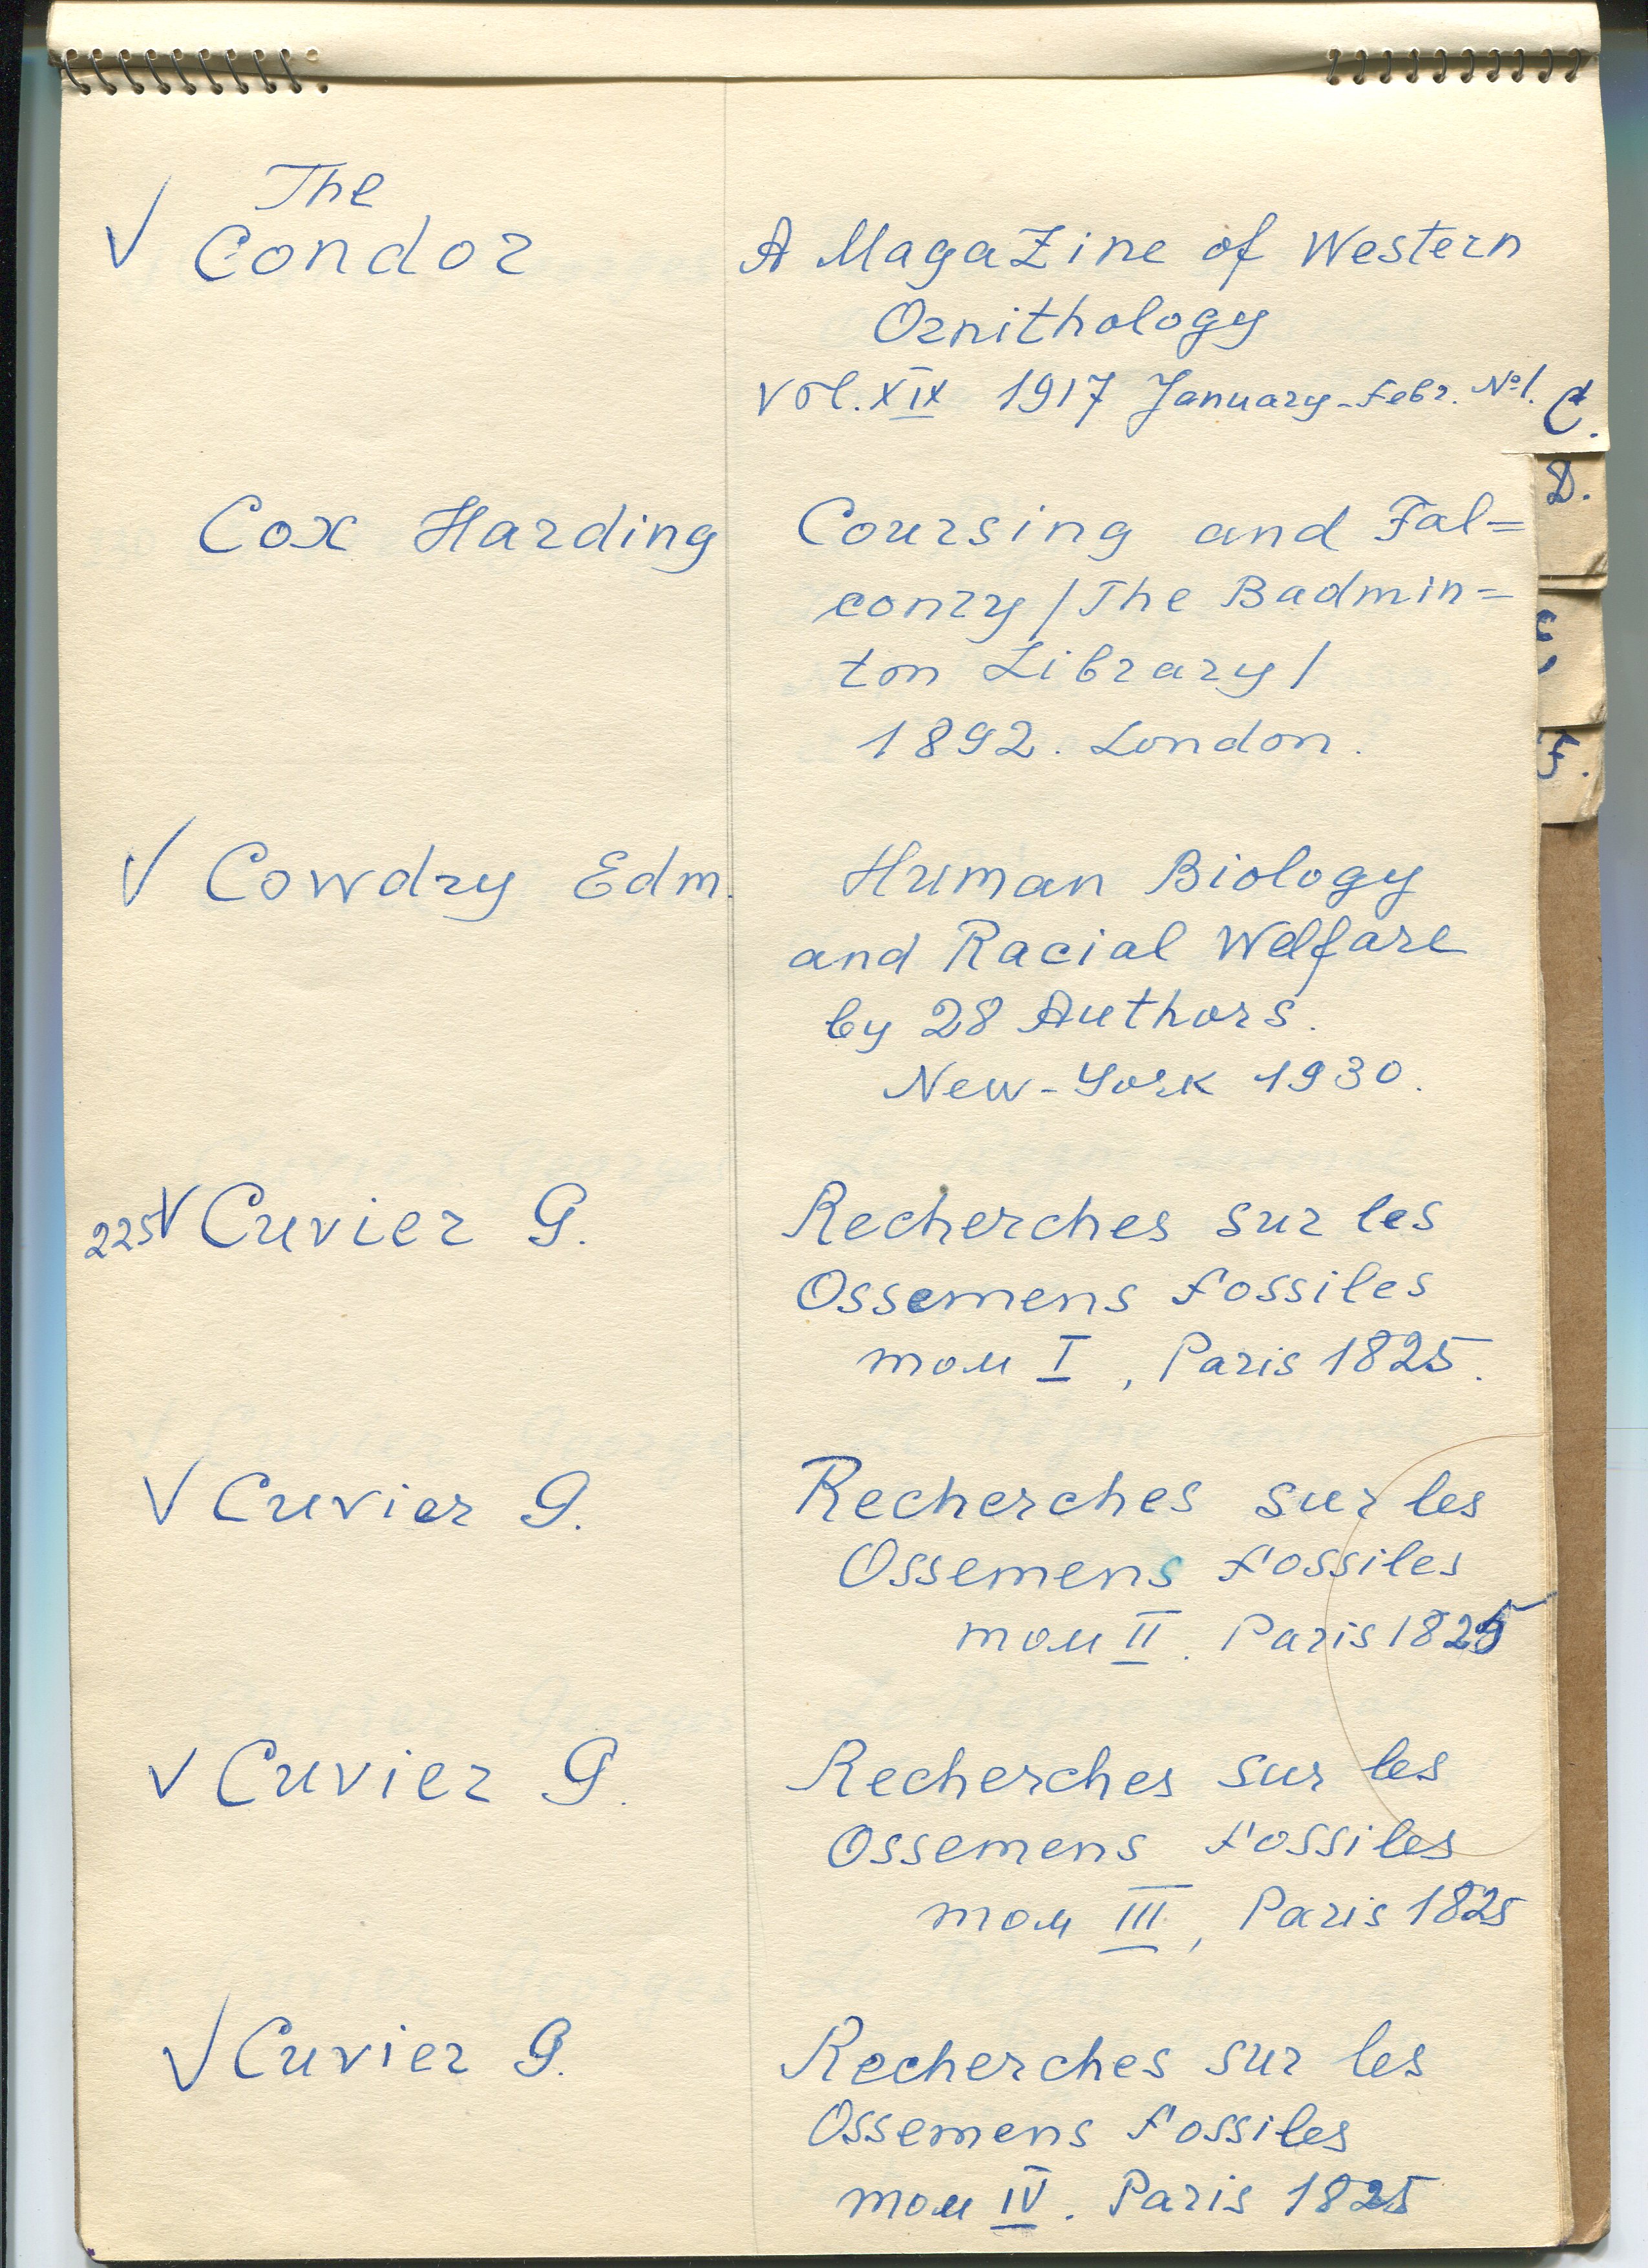 The
√ Condor
A Magazine of Western
Ornithology
vol. XIX 1917 January-Febr. № 1.
C.
D.
Cox Harding
Coursing and Fal=
conry / The Badmin=
ton Library /
1892. London.
√ Cowdry Edm.
Human Biology
and Racial Welfare
by 28 Authors.
New-York 1930.
225 √ Cuvier G.
Recherches sur les
Ossemens fossiles
том I, Paris 1825.
√ Cuvier G.
Recherches sur les
Ossemens fossiles
том II. Paris 1825
√ Cuvier G.
Recherches sur les
Ossemens fossiles
том III, Paris 1825
√ Cuvier G.
Recherches sur les
Ossemens fossiles
том IV. Paris 1825